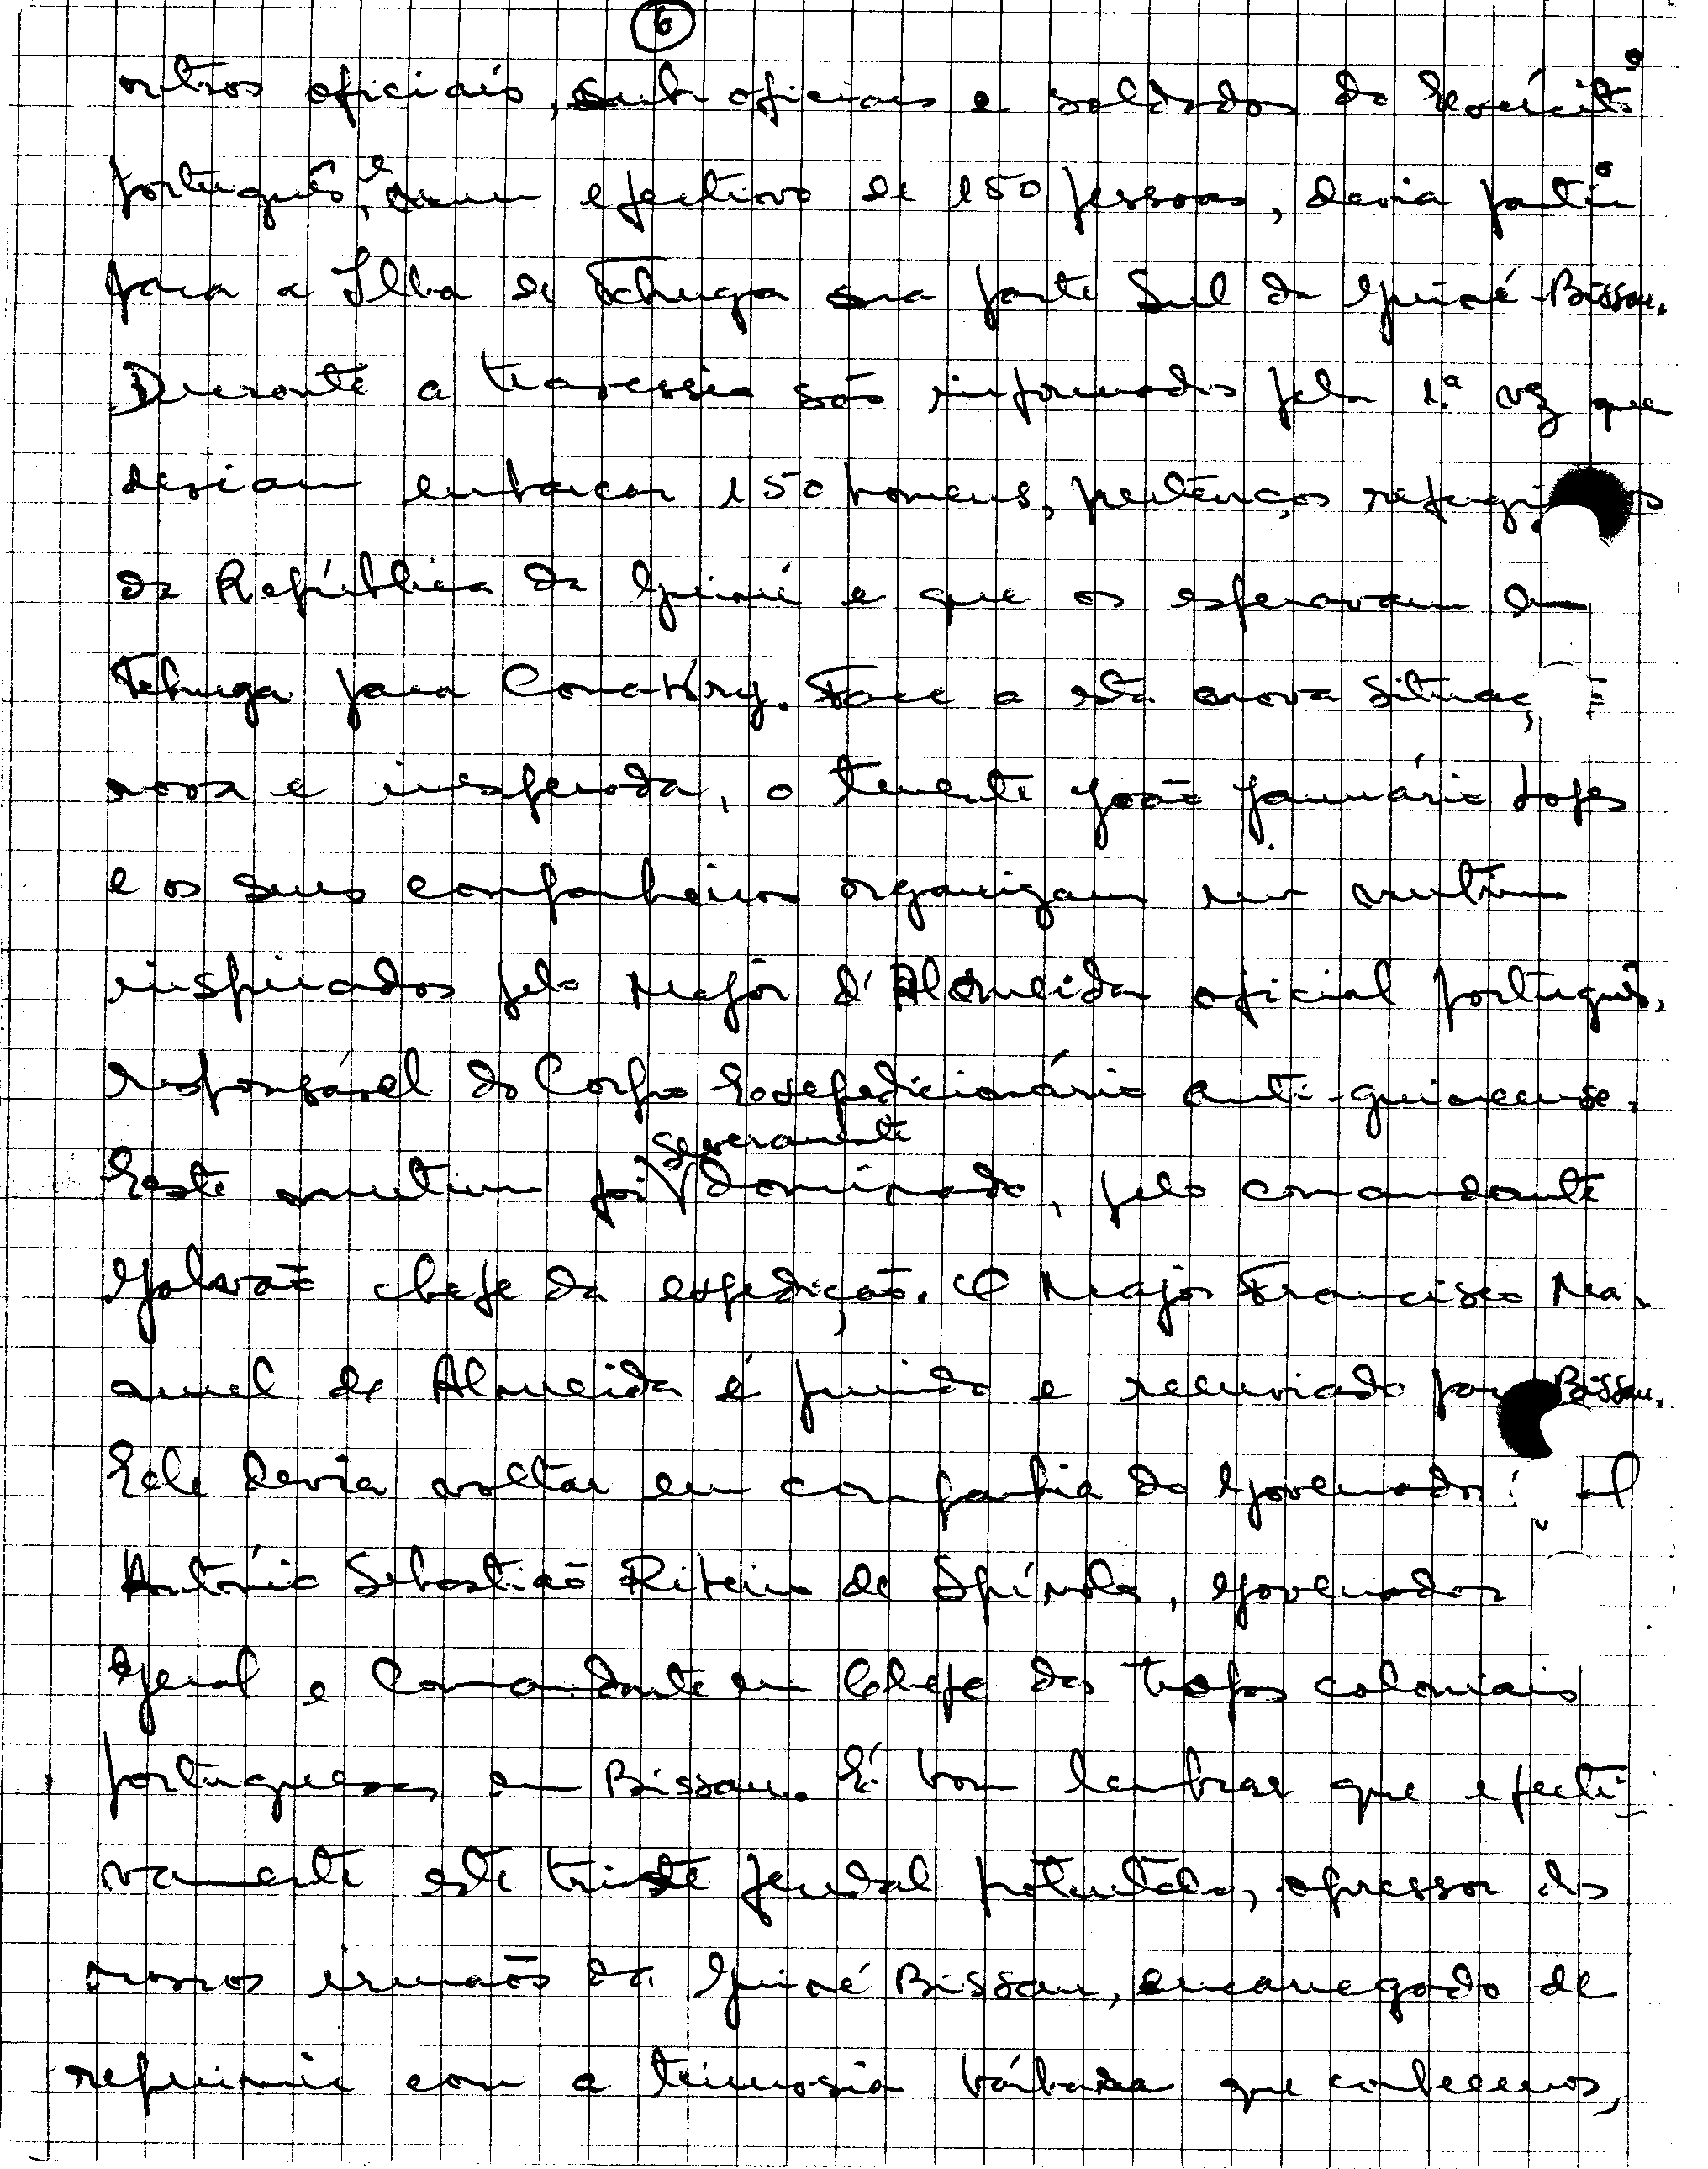 6
outros oficiais, sub oficiais e soldados do Exército
português, e num efectivo de 150 pessoas, devia partir
para a Ilha de Tchuga na parte Sul da Guiné-Bissau.
Durante a travessia são informados pela 1.ª vez que
deviam embarcar 150 homens, pretenços refugi os
da República da Guiné e que os esperavam em
Tchuga para Conakry. Face a esta nova situaç
nova e inesperada, o tenente João Januário Lopes
e os seus companheiros organizam um mutim
inspirados pelo Major d'Almeida oficial português,
responsável do Corpo Expedicionário anti-guineense.
Este mutim foi severamente dominado, pelo comandante
Galvão chefe da expedição. O Major Francisco Ma-
nuel de Almeida é punido e reenviado para Bissau.
Ele devia voltar em companhia do Governador
António Sebastião Ribeiro de Spínola, Governador
Geral e Comandante em Chefe das tropas coloniais
portuguesas em Bissau. É bom lembrar que efecti-
vamente este triste feudal potentado, opressor dos
nossos irmãos da Guiné Bissau, encarregado de
reprimir com a teimosia bárbara que conhecemos,